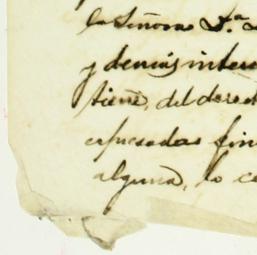 la Señora D.ª
y demás inter
tiene, del derec
expresadas fin
alguna, lo c